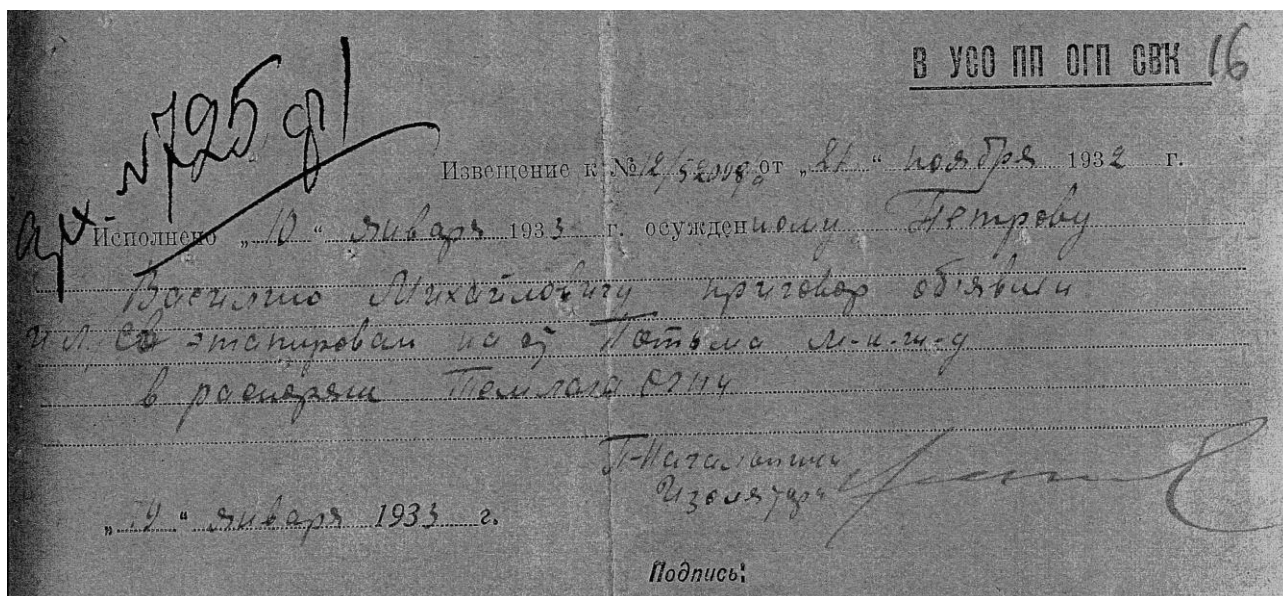 В УСО ПП ОГП СВК 16
арх. №725 дп
Извещение к № 12/ от „21“ ноября 1932 г.
Исполнено „10“ января 1933 г. осужденному Петрову
Василию Михайловичу приговор об'явлен
и этапирован на ст Потьма м-к-ж-д
в распоряж Темлага ОГПУ
П-Начальника
Изолятора
„19“ января 1933 г.
Подпись: